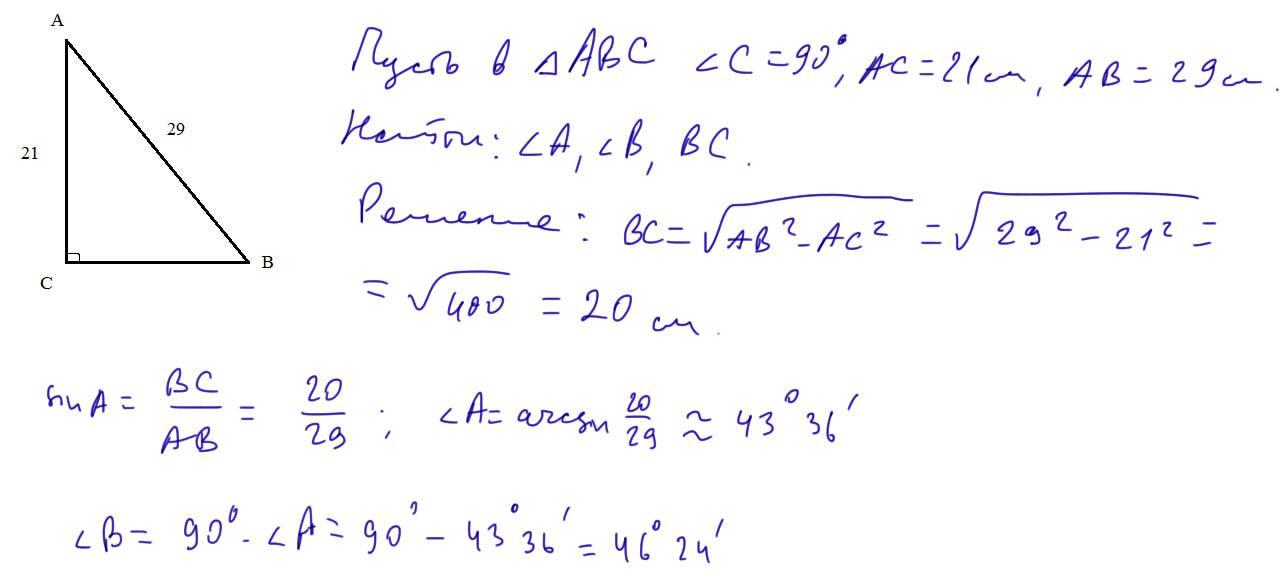 A
21
29
C
B
Пусть в △ABC ∠C=90°, AC=21см, AB=29см.
Найти: ∠A, ∠B, BC.
Решение: BC=√(AB²-AC²) = √(29²-21²) =
= √400 = 20 см.
sin A = BC/AB = 20/29 ; ∠A= arcsin 20/29 ≈ 43°36'
∠B = 90° - ∠A = 90° - 43°36' = 46°24'